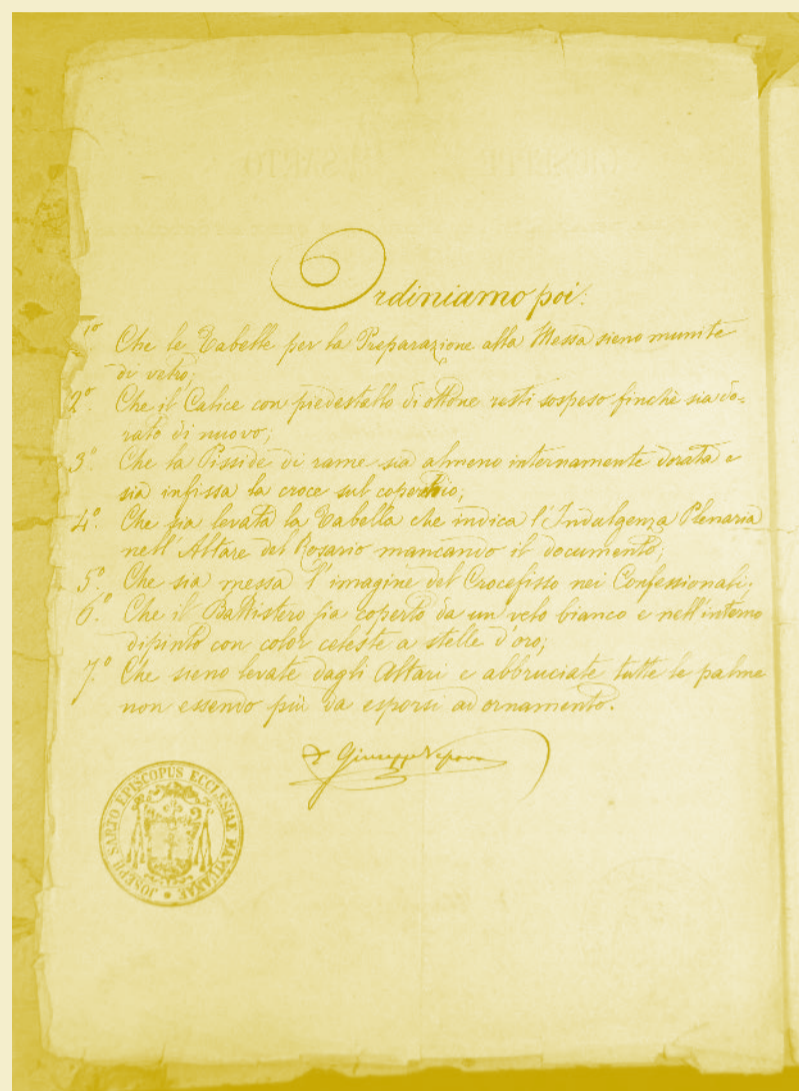 Ordiniamo poi:
1º. Che le Tabelle per la Preparazione alla Messa sieno munite
di vetro;
2º. Che il Calice con piedestallo di ottone resti sospeso finchè sia do=
rato di nuovo;
3º. Che la Pisside di rame sia almeno internamente dorata e
sia infissa la croce sul coperchio;
4º. Che sia levata la Tabella che indica l'Indulgenza Plenaria
nell'Altare del Rosario mancando il documento;
5º. Che sia messa l'imagine del Crocefisso nei Confessionali;
6º. Che il Battistero sia coperto da un velo bianco e nell'interno
dipinto con color celeste a stelle d'oro;
7º. Che sieno levate dagli Altari e abbruciate tutte le palme
non essendo più da esporsi ad ornamento.
+ Giuseppe Vescovo
JOSEPH SARTO EPISCOPUS ECCLESIAE MANTUANAE